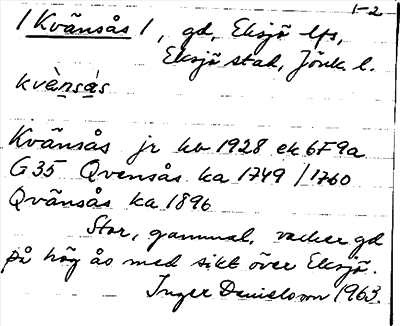 1-2
/Kvänsås/, gd, Eksjö lfs,
Eksjö stad, Jönk. l.
kvä̀nsás
Kvänsås jr kb 1928 ek 6F9a
G35 Qvensås ka 1749/1760
Qvänsås ka 1896
Stor, gammal, vacker gd
på hög ås med sikt över Eksjö.
Inger Danielsson 1963.